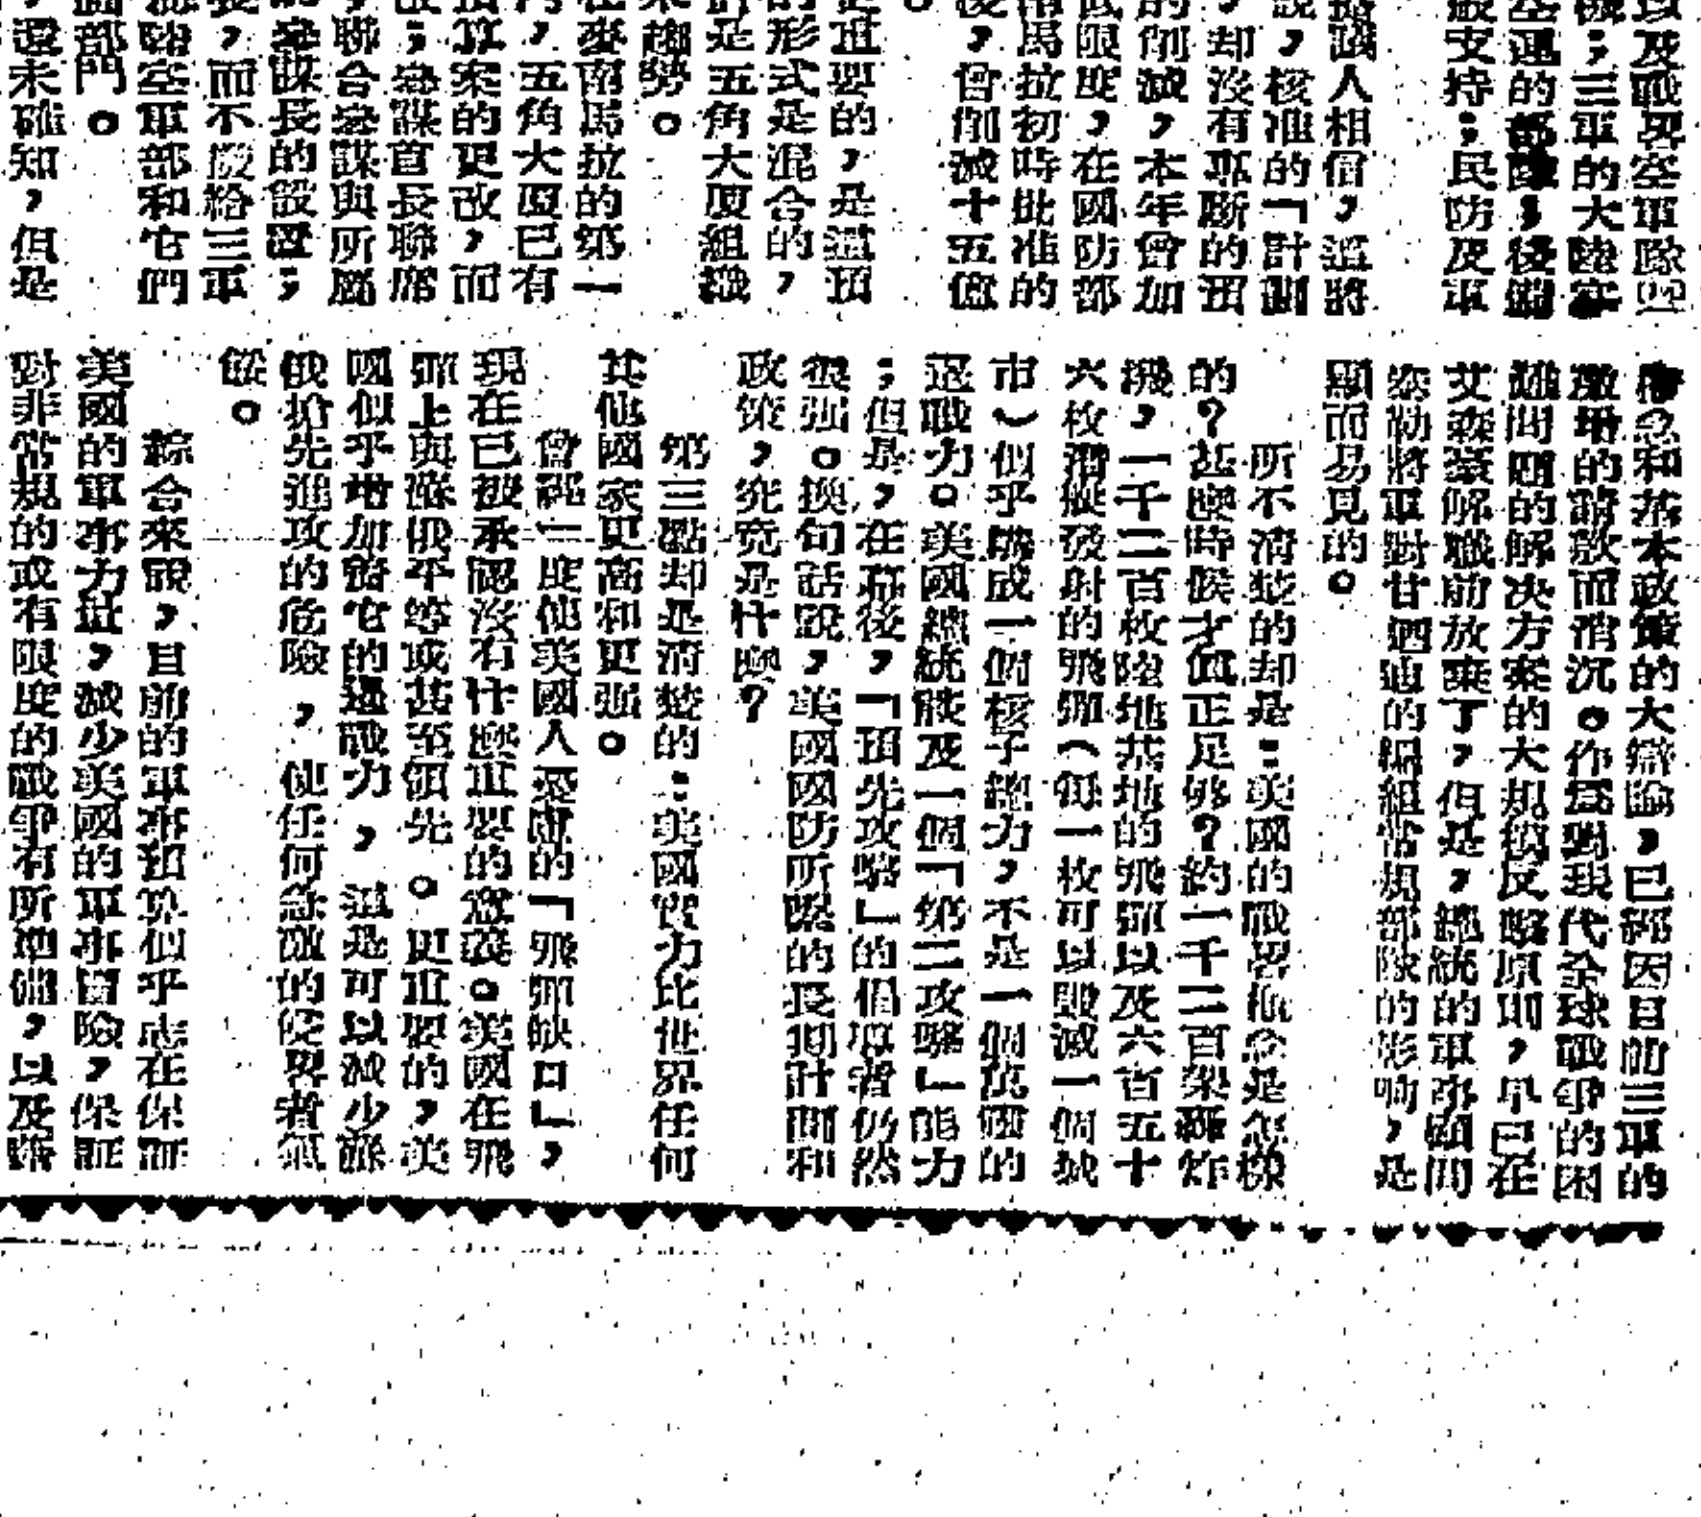 以及戰畧空軍隊與
機；三軍的大陸空
空運的部隊；後備
般支持；民防及軍
據該人相信，這將
說，核准的「計劃
，却沒有專斷的預
的削減，本年會加
低限度，在國防部
南馬拉初時批准的
後，曾削減十五億
。
更重要的，是這預
的形式是混合的，
許是五角大厦組織
來趨勢。
在麥南馬拉的第一
門，五角大厦已有
預算案的更改，而
改；參謀首長聯席
，聯合參謀與所屬
的參謀長的設置；
長，而不設給三軍
海陸空軍部和它們
個部門。
，還未確知，但是
概念和基本政策的大辯論，已經因目前三軍的
激增的請款而消沉。作爲對現代全球戰爭的困
難問題的解決方案的大規模反擊原則，早已在
艾森豪解職前放棄了，但是，總統的軍事顧問
泰勒將軍對甘迺迪的編組常規部隊的影响，是
顯而易見的。
所不清楚的却是：美國的戰畧槪念是怎樣
的？甚麽時候才值正足够？約一千二百架轟炸
機，一千二百枚陸地基地的飛彈以及六百五十
六枚潛艇發射的飛彈（每一枚可以毀滅一個城
市）似乎構成一個核子總力，不是一個萬國的
退戰力。美國總統談及一個「第二攻擊」能力
；但是，在幕後，「預先攻擊」的倡導者仍然
很强。換句話說，美國國防所緊的長期計劃和
政策，究竟是什麽？
第三點却是清楚的：美國實力比世界任何
其他國家更高和更强。
曾經一度使美國人憂慮的「飛彈缺口」，
現在已被承認沒有什麽重要的意義。美國在飛
彈上與蘇俄平等或甚至領先。更重要的，美
國似乎增加着它的遏戰力，這是可以減少蘇
俄搶先進攻的危險，使任何急激的侵畧者氣
餒。
綜合來說，目前的軍事預算似乎志在保証
美國的軍事力量，減少美國的軍事冒險，保証
對非常規的或有限度的戰爭有所準備，以及蘇